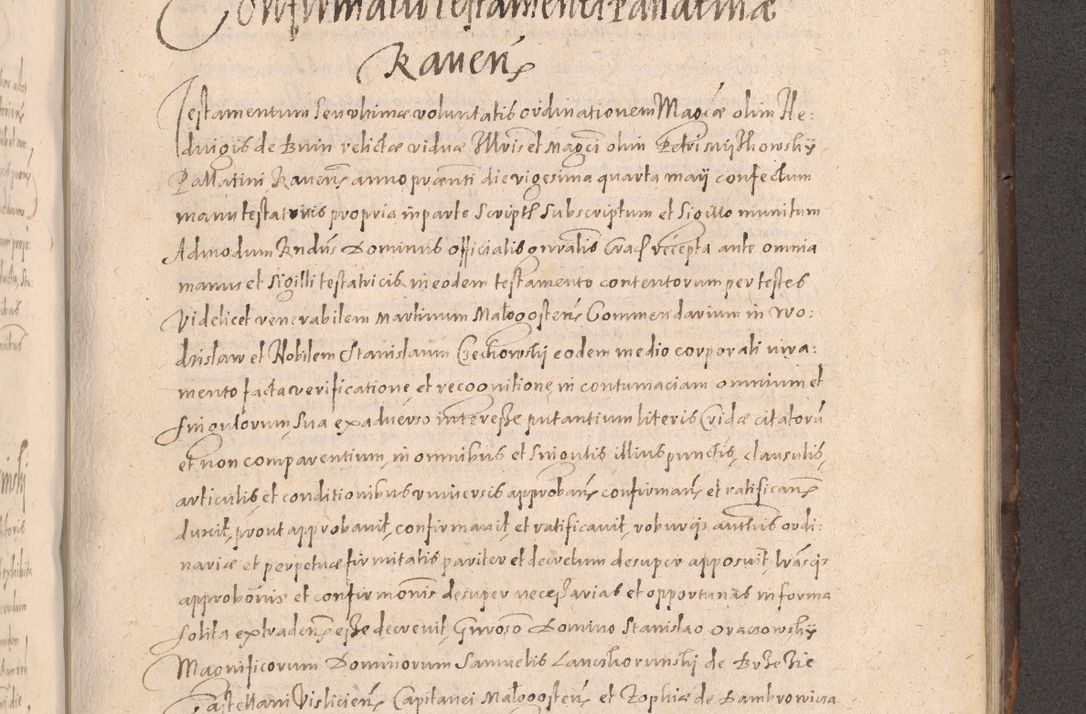 Confirmatio Testamenti Palatinæ
Raven̄
Testamentum seu ultimæ voluntatis ordinationem Mag̃cæ olim He:
duigis de Bnin relictæ viduæ Ill̃ris et Mag̃ci olim Petri Myszkowsky
Pallatini Raven̄ anno præn̄ti die vigesima quarta maij confectum
manu testatricis propria in parte script̃ subscriptum et sigillo munitum
Admodum Rn̄dus Dominus officialis gn̄ralis Crac̃ recepta ante omnia
manus et sigilli testatricis in eodem testamento contentorum per testes
videlicet venerabilem Martinum Małogosten̄ Commendarium in Wo:
dzisław et Nobilem Stanislaum Czechowskij eodem medio corporali iura:
mento facta verificatione et recognitione in contumaciam omnium et
singulorum sua ex adverso interesse putantium literis Cridæ citatorũ
et non comparentium in omnibus et singulis illius punctis, clausulis,
articulis et conditionibus universis approban̄ confirman̄ et ratifican̄
duxit, prout approbavit, confirmavit et ratificavit, roburq; authũs ordi:
nariæ et perpetuæ firmitatis pariter et decretum desuper apposuit, l̃rasq;
approbõnis et confirmõnis desuper necessarias et opportunas in forma
solita extraden̄ esse decrevit Gn̄roso Domino Stanislao Oraczowsky
Magnificorum Dominorum Samuelis Lanczkorunskj de Brzezie
Castellani Visliciẽn Capitanei Małogosten̄ et Zophiæ de